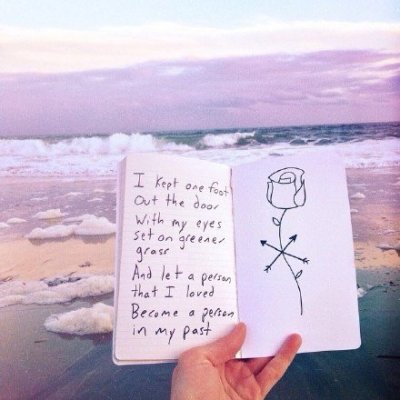 I kept one foot
Out the door
With my eyes
set on greener
grass
And let a person
that I loved
Become a person
in my past